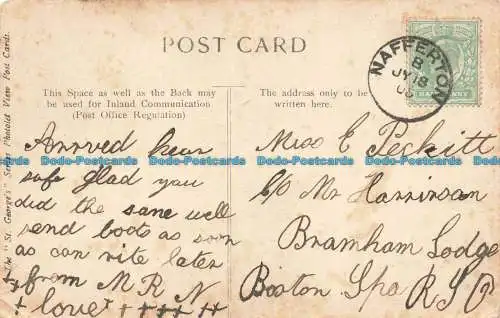 POST CARD
This Space as well as the Back may
be used for Inland Communication
(Post Office Regulation)
The address only to be
written here.
The "St. George's" Series Photolet View Post Cards.
NAFFERTON
B
JY 18
06
HALFPENNY
Arrived hear
safe glad you
did the sane well
send boots as soon
as can rite later
from M R N
+ love + + + + +
Miss E Peskitt
C/O Mr Harrinson
Bramham Lodge
Boston Spa R S O
Dodo-Postcards Dodo-Postcards Dodo-Postcards Dodo-Postcards Dodo-Postcards
Dodo-Postcards Dodo-Postcards Dodo-Postcards Dodo-Postcards Dodo-Postcards